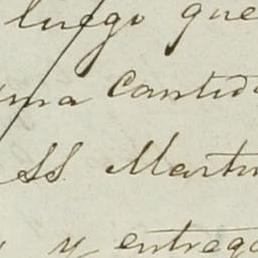 luego que
una cantid
SS Martin
y entrega